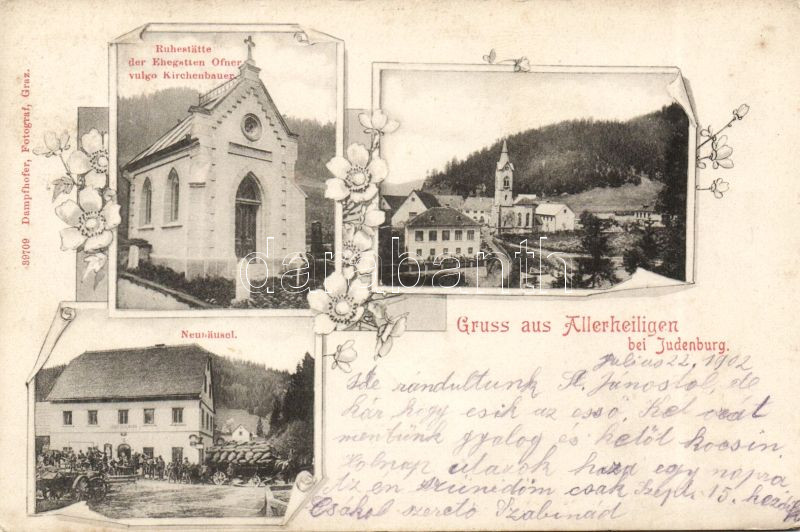 Ruhestätte
der Ehegatten Ofner
vulgo Kirchenbauer.
39709 Dampfhofer, Fotograf, Graz.
darabanth
Neuhäusel.
Gruss aus Allerheiligen
bei Judenburg.
Julius 22, 1902
Ide rándultunk St. Jánostol, de
kár hogy esik az esső. Két órát
mentünk gyalog és kettőt kocsin.
Holnap utazok haza egy napra
Az én szünedőm csak Szept. 15.
Csókol szerető Szabinád